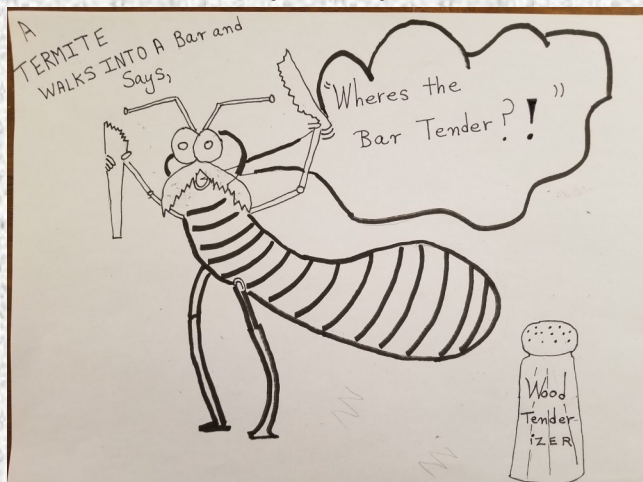 A
TERMITE
WALKS INTO A Bar and
Says,
"Wheres the
Bar Tender?!"
Wood
Tender-
iZER